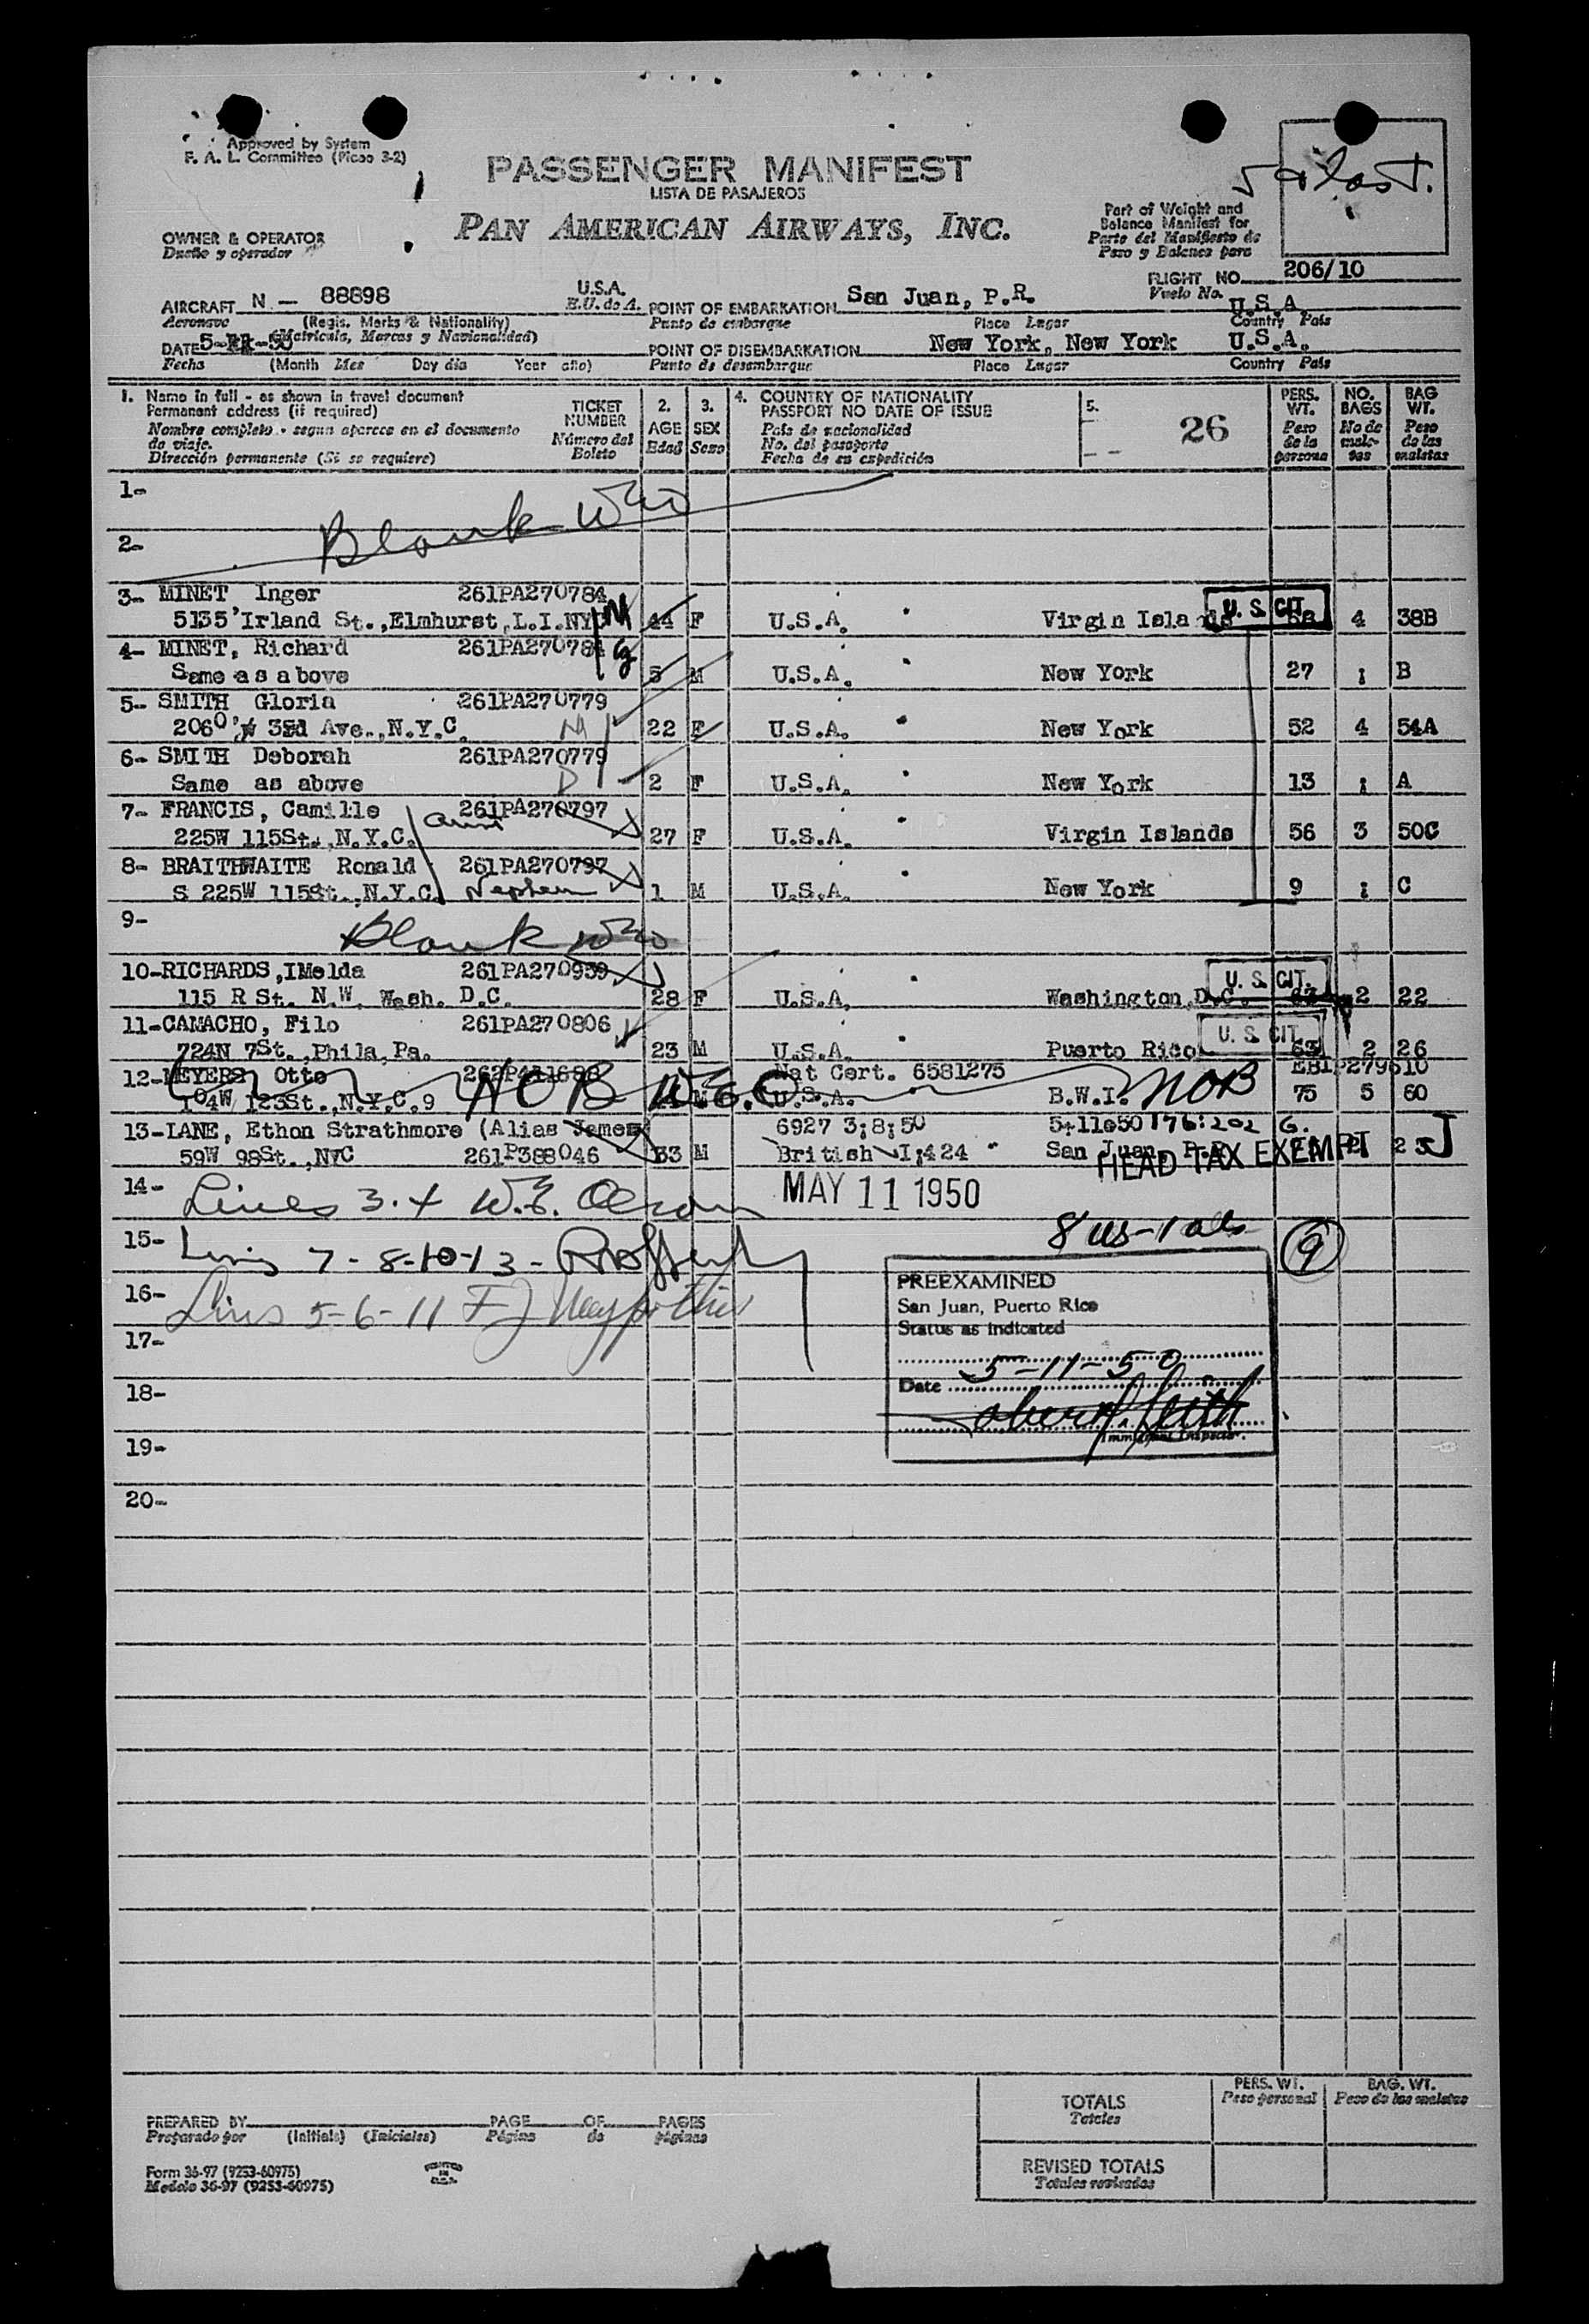 Approved by System
F. A. L. Committee (Picao 3-2)
PASSENGER MANIFEST
LISTA DE PASAJEROS
PAN AMERICAN AIRWAYS, INC.
OWNER & OPERATOR
Dueño y operador
Part of Weight and
Balance Manifest for
Parte del Manifiesto de
Peso y Balance para
FLIGHT NO. 206/10
Vuelo No.
AIRCRAFT N — 88898 U.S.A.
E.U. de A.
Aeronave (Regis. Marks & Nationality)
(Matricula, Marcas y Nacionalidad)
POINT OF EMBARKATION San Juan, P.R. U.S.A
Punto de embarque Place Lugar Country País
DATE
Fecha (Month Mes Day día Year año)
POINT OF DISEMBARKATION New York, New York U.S.A.
Punto de desembarque Place Lugar Country País
1. Name in full - as shown in travel document
Permanent address (if required)
Nombre completo - segun aparece en el documento
de viaje.
Dirección permanente (Si se requiere)
TICKET
NUMBER
Número del
Boleto
2.
AGE
Edad
3.
SEX
Sexo
4. COUNTRY OF NATIONALITY
PASSPORT NO DATE OF ISSUE
País de nacionalidad
No. del pasaporte
Fecha de su expedición
5.
26
PERS.
WT.
Peso
de la
persona
NO.
BAGS
No de
male-
tas
BAG
WT.
Peso
de las
maletas
1-
Blank
2-
3- MINET Inger 261PA270784
5135 'Irland St.,Elmhurst,L.I.NY 44 F U.S.A. Virgin Islands U. S. CIT. 4 38B
4- MINET, Richard 261PA270784
Same as above 5 M U.S.A. New York 27 ; B
5- SMITH Gloria 261PA270779
2060 3rd Ave.,N.Y.C. M 22 F U.S.A. New York 52 4 54A
6- SMITH Deborah 261PA270779
Same as above D 2 F U.S.A. New York 13 ; A
7- FRANCIS, Camille 261PA270797
225W 115St., N.Y.C. aunt 27 F U.S.A. Virgin Islands 56 3 50C
8- BRAITHWAITE Ronald 261PA270797
S 225W 115St.,N.Y.C. Nephew 1 M U.S.A. New York 9 ; C
9-
Blank
10-RICHARDS,IMelda 261PA270939
115 R St. N.W. Wash. D.C. 28 F U.S.A. Washington,D.C. U. S. CIT. 63 2 22
11-CAMACHO, Filo 261PA270806
724N 7St.,Phila,Pa. 23 M U.S.A. Puerto Rico U. S. CIT. 63 2 26
12-MEYERS Otto Nat Cert. 6581275 EB1P279610
104W 123St.,N.Y.C.9 NOB M U.S.A. B.W.I. NOB 75 5 60
13-LANE, Ethon Strathmore (Alias James 6927 3;8;50
59W 98St.,NYC 261P388046 33 M British I;424 San Juan, P.R. HEAD TAX EXEMPT
14- Lines 3.4 MAY 11 1950
8 us-1 als 9
15- Lines 7-8-10-13-
16- Lines 5-6-11
17-
18-
19-
20-
PREEXAMINED
San Juan, Puerto Rico
Status as indicated
5-11-50
Date
Immigrant Inspector.
TOTALS
Totales
PERS. WT.
Peso personal
BAG. WT.
Peso de las maletas
REVISED TOTALS
Totales revisados
PREPARED BY PAGE OF PAGES
Preparado por (Initials) (Iniciales) Página de páginas
Form 36-97 (9253-60975)
Modelo 36-97 (9253-60975)